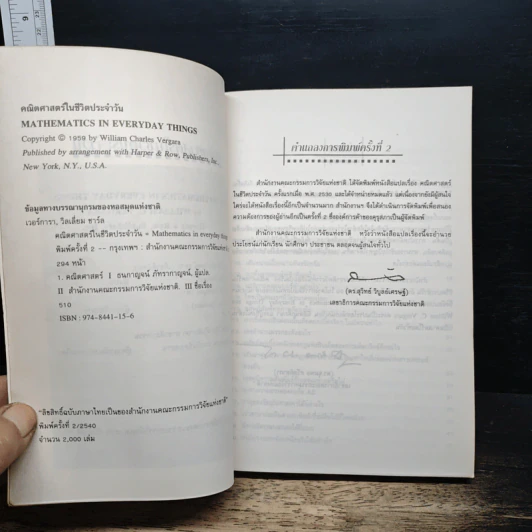 คณิตศาสตร์ในชีวิตประจำวัน
MATHEMATICS IN EVERYDAY THINGS
Copyright © 1959 by William Charles Vergara
Published by arrangement with Harper & Row, Publishers, Inc.,
New York, N.Y., U.S.A.
ข้อมูลทางบรรณานุกรมของหอสมุดแห่งชาติ
เวอร์การา, วิลเลี่ยม ชาร์ล
คณิตศาสตร์ในชีวิตประจำวัน = Mathematics in everyday thing
พิมพ์ครั้งที่ 2 -- กรุงเทพฯ : สำนักงานคณะกรรมการวิจัยแห่งชาติ
294 หน้า
1. คณิตศาสตร์ I ธนกาญจน์ ภัทรากาญจน์, ผู้แปล
II สำนักงานคณะกรรมการวิจัยแห่งชาติ. III ชื่อเรื่อง
510
ISBN : 974-8441-15-6
"ลิขสิทธิ์ฉบับภาษาไทยเป็นของสำนักงานคณะกรรมการวิจัยแห่งชาติ"
พิมพ์ครั้งที่ 2/2540
จำนวน 2,000 เล่ม
คำแถลงการพิมพ์ครั้งที่ 2
สำนักงานคณะกรรมการวิจัยแห่งชาติ ได้จัดพิมพ์หนังสือแปลเรื่อง คณิตศาสตร์
ในชีวิตประจำวัน ครั้งแรกเมื่อ พ.ศ. 2530 และได้จำหน่ายหมดแล้ว แต่เนื่องจากยังมีผู้สนใจ
ใคร่จะได้หนังสือเรื่องนี้อีกเป็นจำนวนมาก สำนักงานฯ จึงได้ดำเนินการจัดพิมพ์เพื่อสนอง
ความต้องการของผู้อ่านอีกเป็นครั้งที่ 2 ซึ่งองค์การค้าของคุรุสภาเป็นผู้จัดพิมพ์
สำนักงานคณะกรรมการวิจัยแห่งชาติ หวังว่าหนังสือแปลเรื่องนี้จะอำนวย
ประโยชน์แก่นักเรียน นักศึกษา ประชาชน ตลอดจนผู้สนใจทั่วไป
(ดร.สุวิทย์ วิบูลย์เศรษฐ์)
เลขาธิการคณะกรรมการวิจัยแห่งชาติ